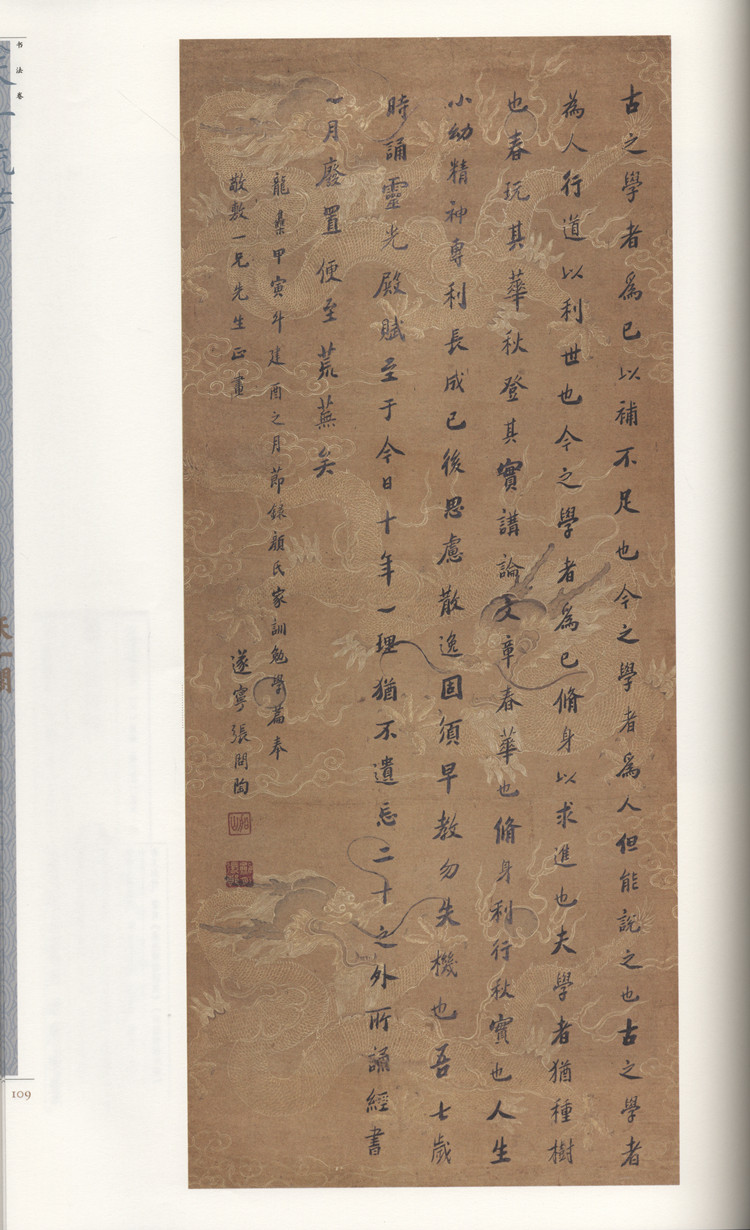 古之學者爲已以補不足也今之學者爲人但能說之也古之學者
為人行道以利世也今之學者爲已脩身以求進也夫學者猶種樹
也春玩其華秋登其實講論文章春華也脩身利行秋實也人生
小幼精神專利長成已後思慮散逸固須早教勿失機也吾七歲
時誦靈光殿賦至于今日十年一理猶不遺忘二十之外所誦經書
一月廢置便至荒蕪矣
龍集甲寅斗建酉之月節錄顏氏家訓勉學篇奉
敬敷一兄先生正 遂寧張問陶
书法卷
109